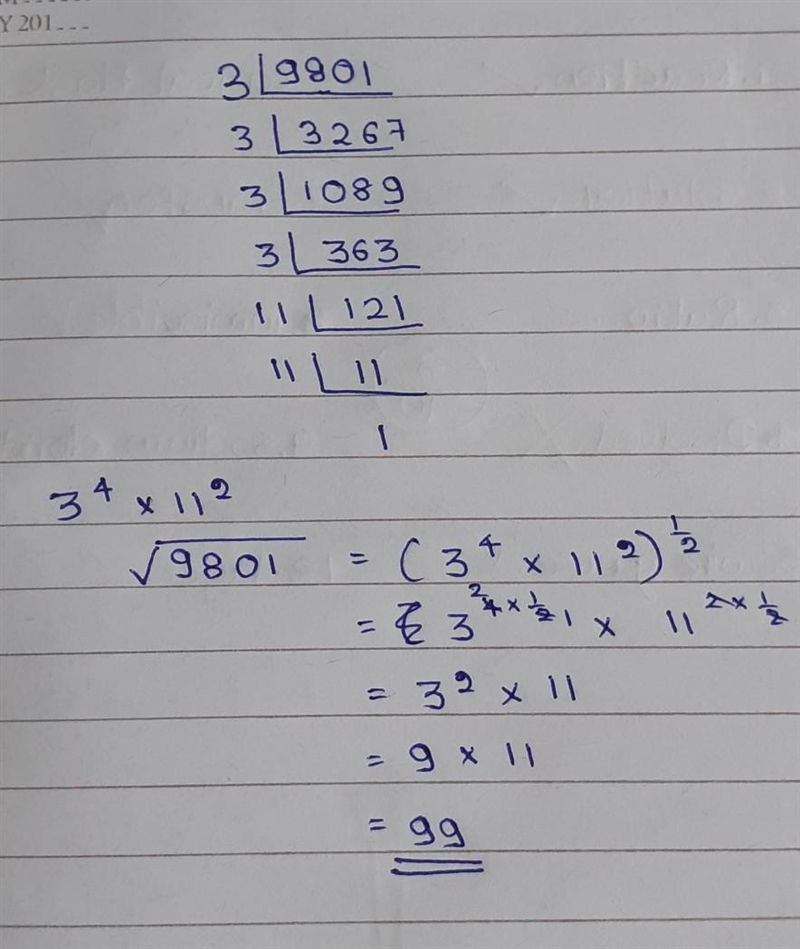 Y 201
3 | 9801
3 | 3267
3 | 1089
3 | 363
11 | 121
11 | 11
1
3⁴ × 11²
√9801 = (3⁴ × 11²)^1/2
= 3^4×1/2 × 11^2×1/2
= 3² × 11
= 9 × 11
= 99